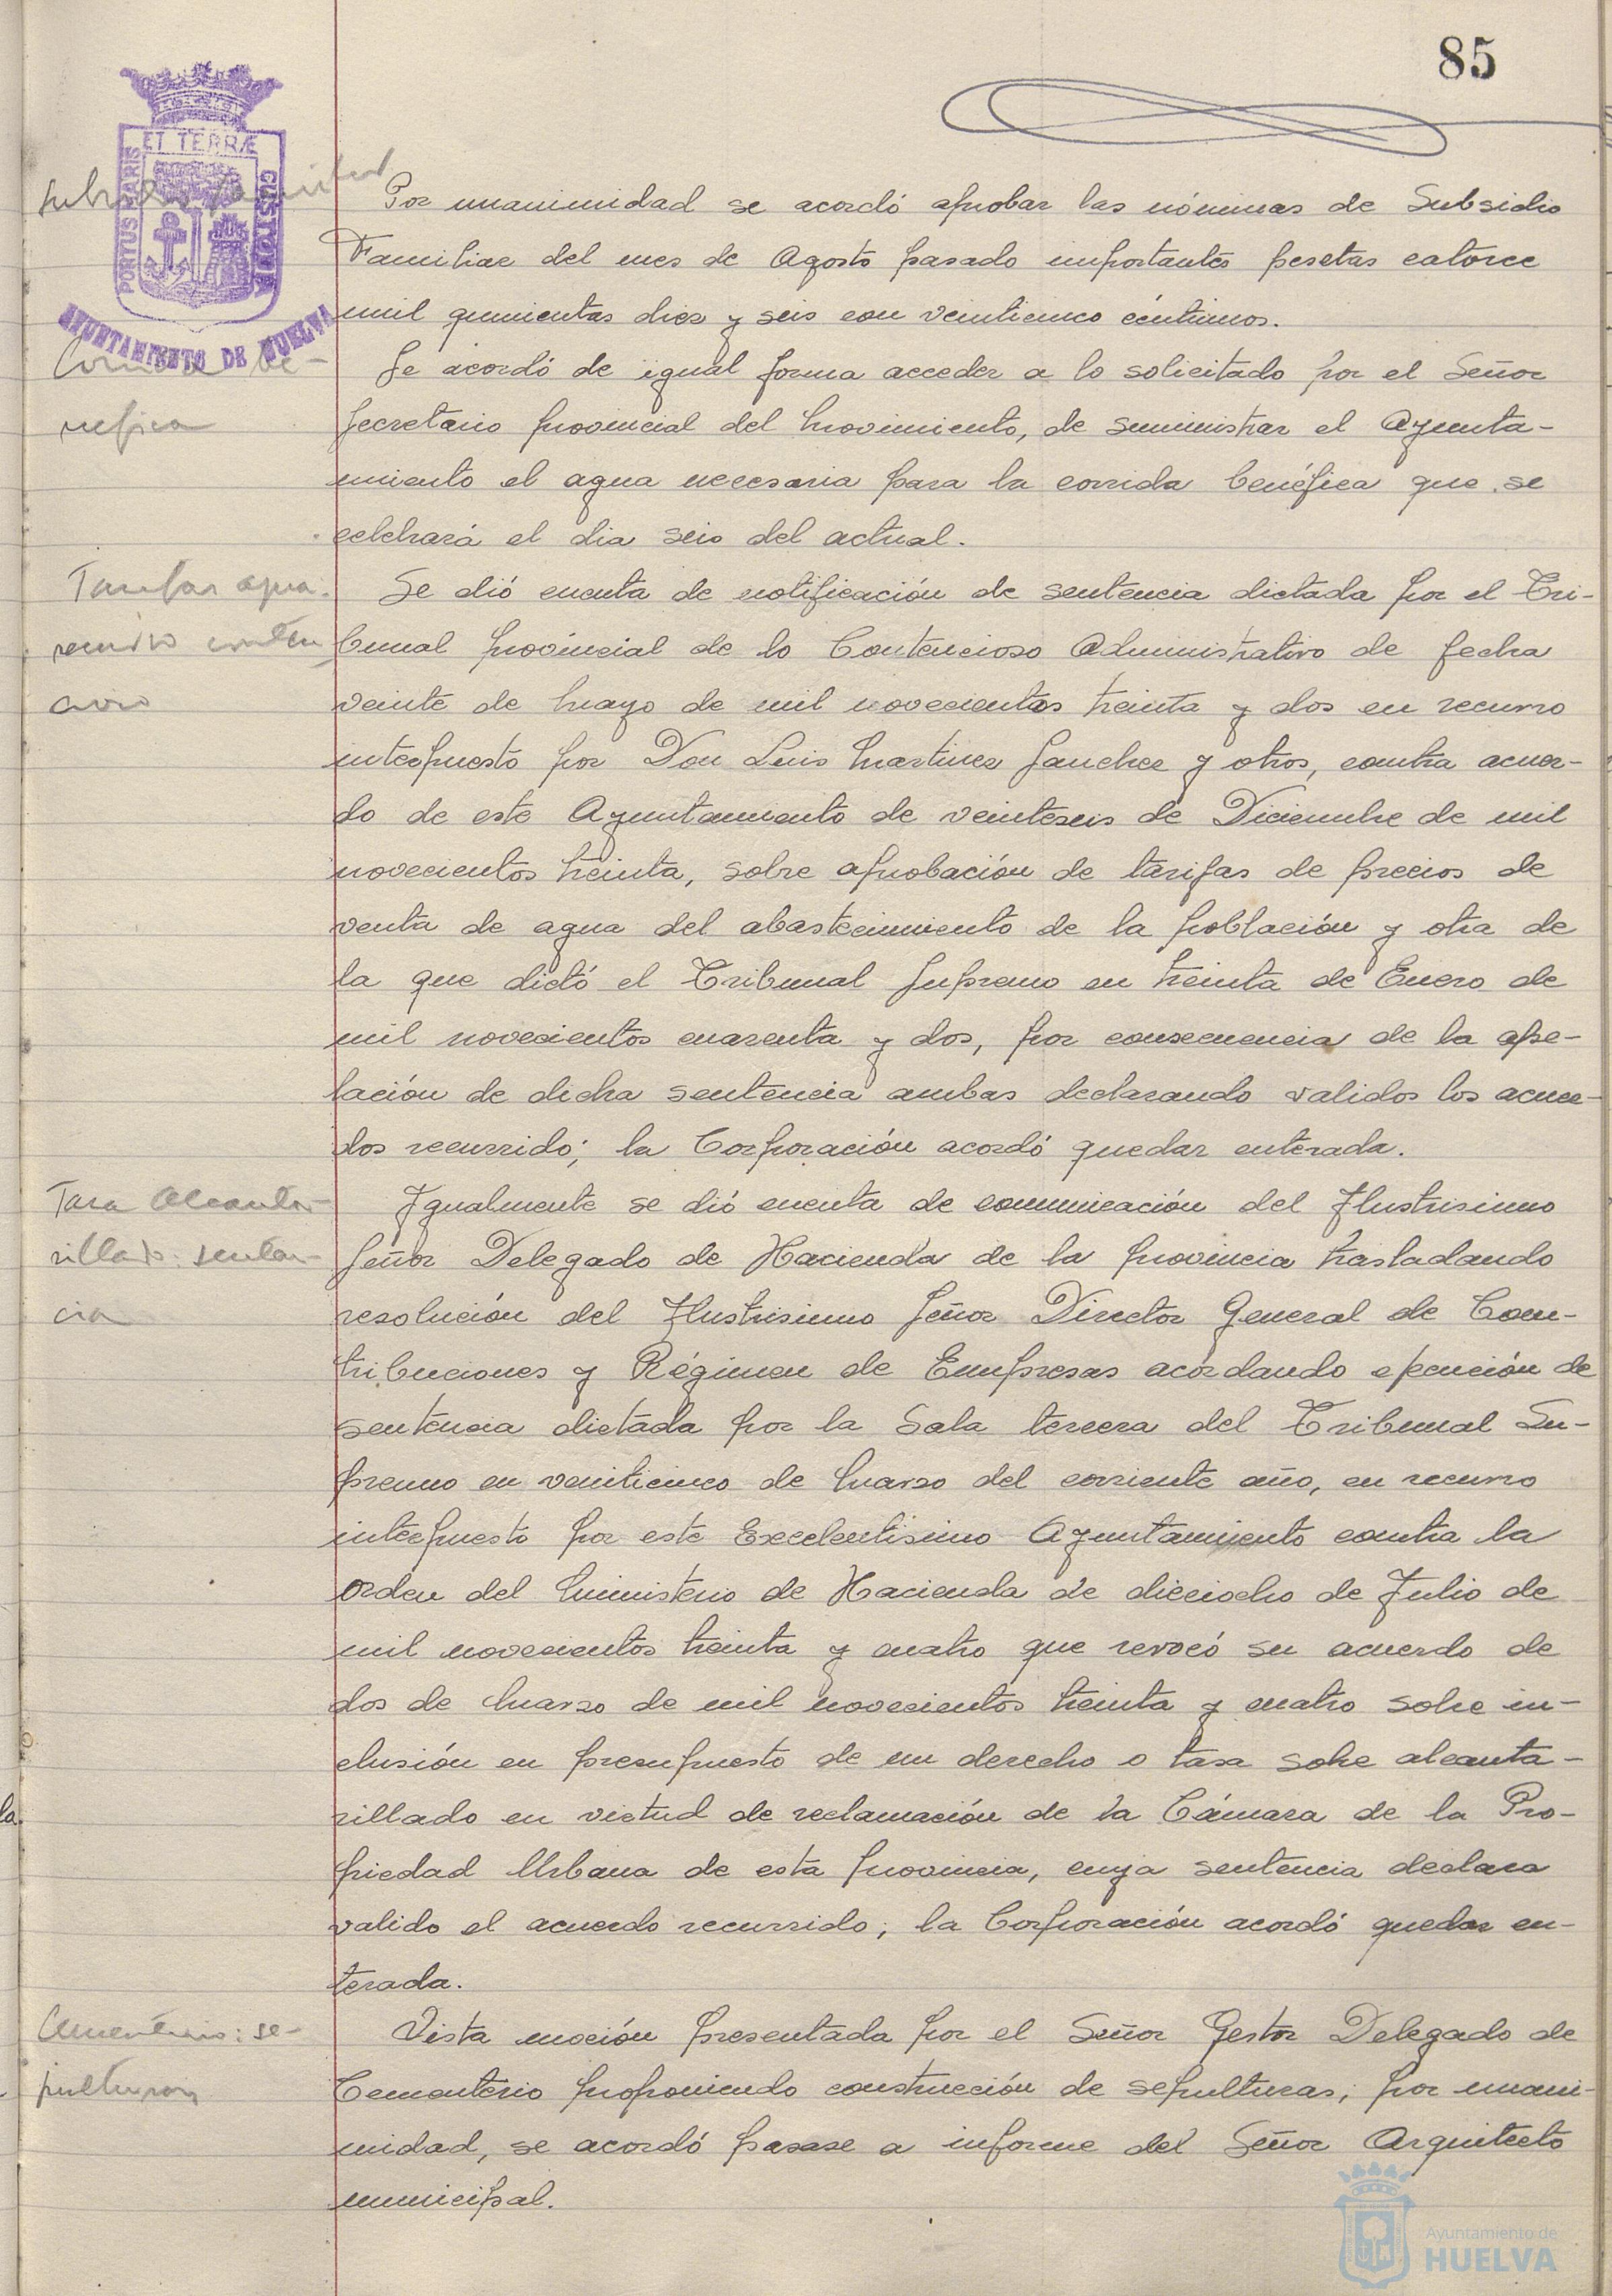 85
PORTUS MARIS ET TERRÆ CUSTODIA
AYUNTAMIENTO DE HUELVA
Subsidio Familiar
Por unanimidad se acordó aprobar las nóminas de Subsidio
Familiar del mes de Agosto pasado importantes pesetas catorce
mil quinientas diez y seis con veinticinco céntimos.
Corrida be-
néfica
Se acordó de igual forma acceder a lo solicitado por el Señor
Secretario provincial del Movimiento, de suministrar el Ayunta-
miento el agua necesaria para la corrida benéfica que se
celebrará el dia seis del actual.
Tarifas agua.
recurso conten
cioso
Se dió cuenta de notificación de sentencia dictada por el Tri-
bunal provincial de lo Contencioso Administrativo de fecha
veinte de Mayo de mil novecientos treinta y dos en recurso
interpuesto por Don Luis Martinez Sanchez y otros, contra acuer-
do de este Ayuntamiento de veinteseis de Diciembre de mil
novecientos treinta, sobre aprobación de tarifas de precios de
venta de agua del abastecimiento de la población y otra de
la que dictó el Tribunal Supremo en treinta de Enero de
mil novecientos cuarenta y dos, por consecuencia de la ape-
lación de dicha sentencia ambas declarando validos los acuer-
dos recurrido; la Corporación acordó quedar enterada.
Tasa Alcanta-
rillado: senten-
cia
Igualmente se dió cuenta de comunicación del Ilustrisimo
Señor Delegado de Hacienda de la provincia trasladando
resolución del Ilustrisimo Señor Director General de Con-
tribuciones y Régimen de Empresas acordando ejecución de
sentencia dictada por la Sala tercera del Tribunal Su-
premo en veinticinco de Marzo del corriente año, en recurso
interpuesto por este Excelentisimo Ayuntamiento contra la
orden del Ministerio de Hacienda de dieciocho de Julio de
mil novecientos treinta y cuatro que revocó su acuerdo de
dos de Marzo de mil novecientos treinta y cuatro sobre in-
clusión en presupuesto de un derecho o tasa sobre alcanta-
rillado en virtud de reclamación de la Cámara de la Pro-
piedad Urbana de esta provincia, cuya sentencia declara
valido el acuerdo recurrido; la Corporación acordó quedar en-
terada.
Cementerio: se-
pulturas
Vista moción presentada por el Señor Gestor Delegado de
Cementerio proponiendo construcción de sepulturas; por unani-
midad, se acordó pasase a informe del Señor Arquitecto
municipal.
la
Ayuntamiento de
HUELVA